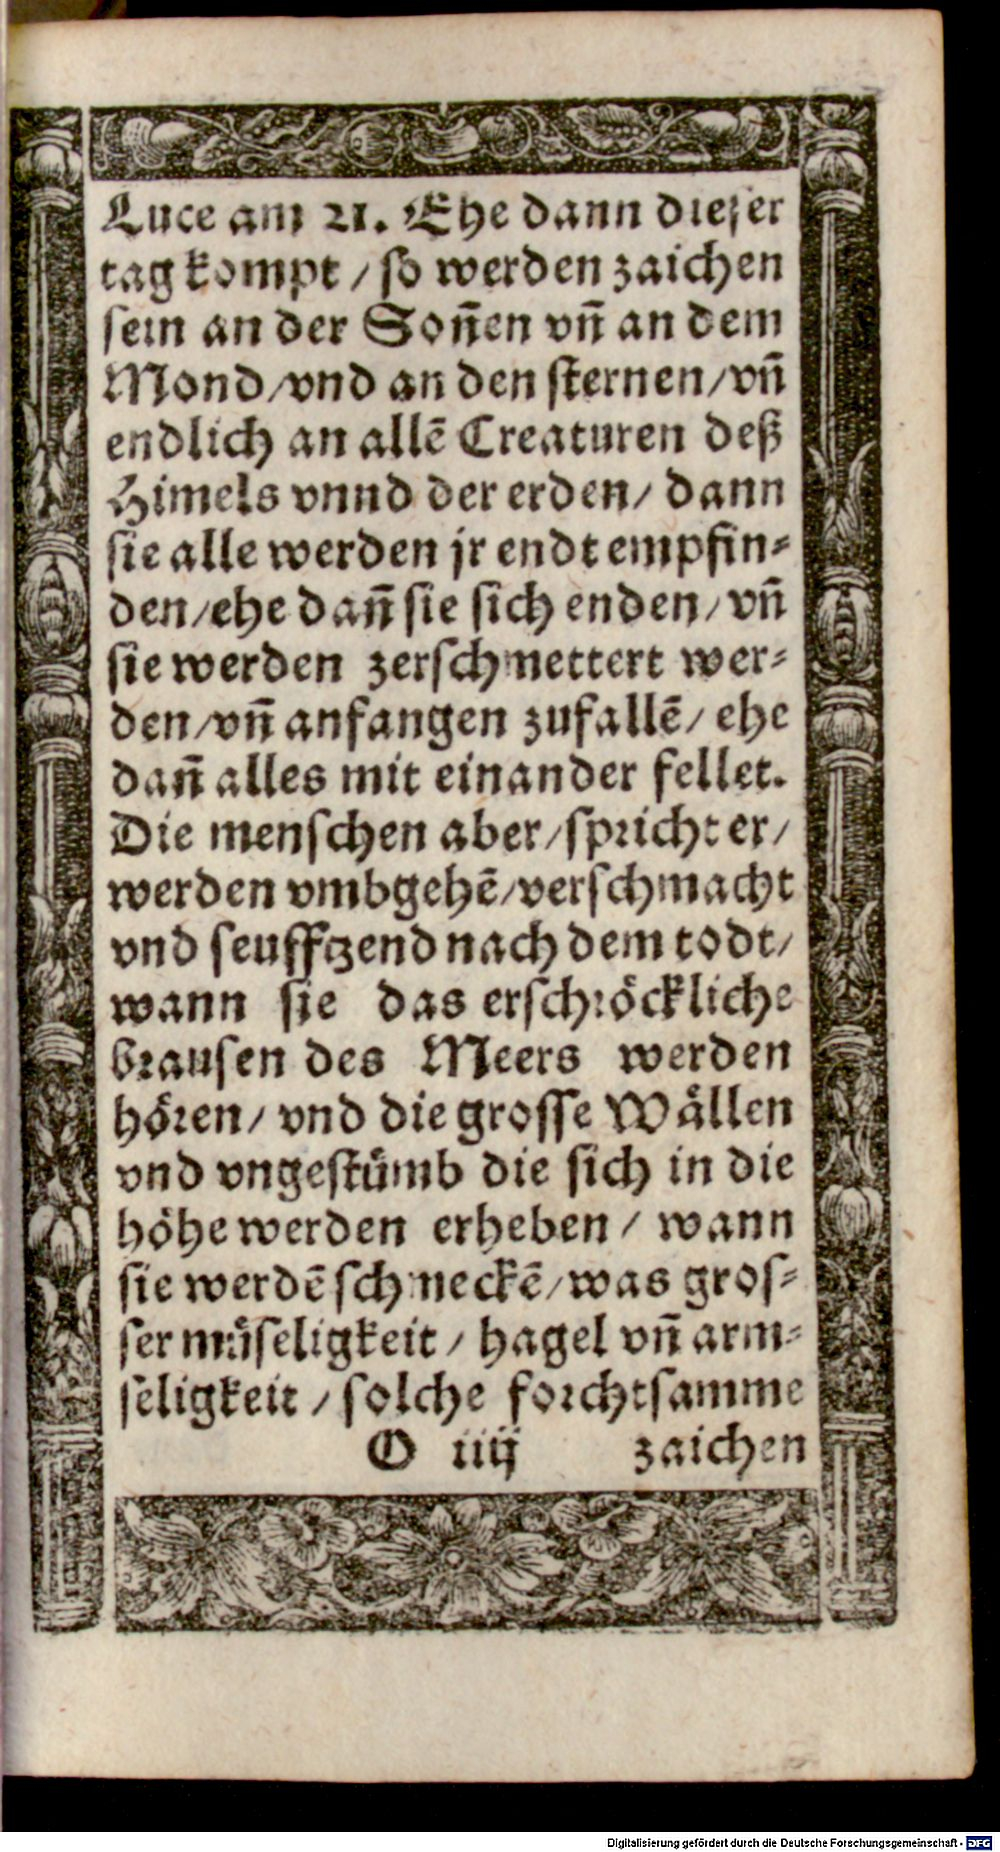 Luce am 21. Ehe dann dieser
tag kompt / so werden zaichen
sein an der Soñen vñ an dem
Mond/vnd an den sternen/vñ
endlich an allē Creaturen deß
Himels vnnd der erden/ dann
sie alle werden jr endt empfin⸗
den/ehe dañ sie sich enden/vñ
sie werden zerschmettert wer⸗
den/vñ anfangen zufallē/ ehe
dañ alles mit einander fellet.
Die menschen aber/spricht er/
werden vmbgehē/verschmacht
vnd seufftzend nach dem todt/
wann sie das erschröckliche
brausen des Meers werden
hören/ vnd die grosse Wällen
vnd vngestümb die sich in die
höhe werden erheben / wann
sie werdē schmeckē/was gros⸗
ser müseligkeit / hagel vñ arm⸗
seligkeit / solche forchtsamme
O iiij zaichen
Digitalisierung gefördert durch die Deutsche Forschungsgemeinschaft - DFG